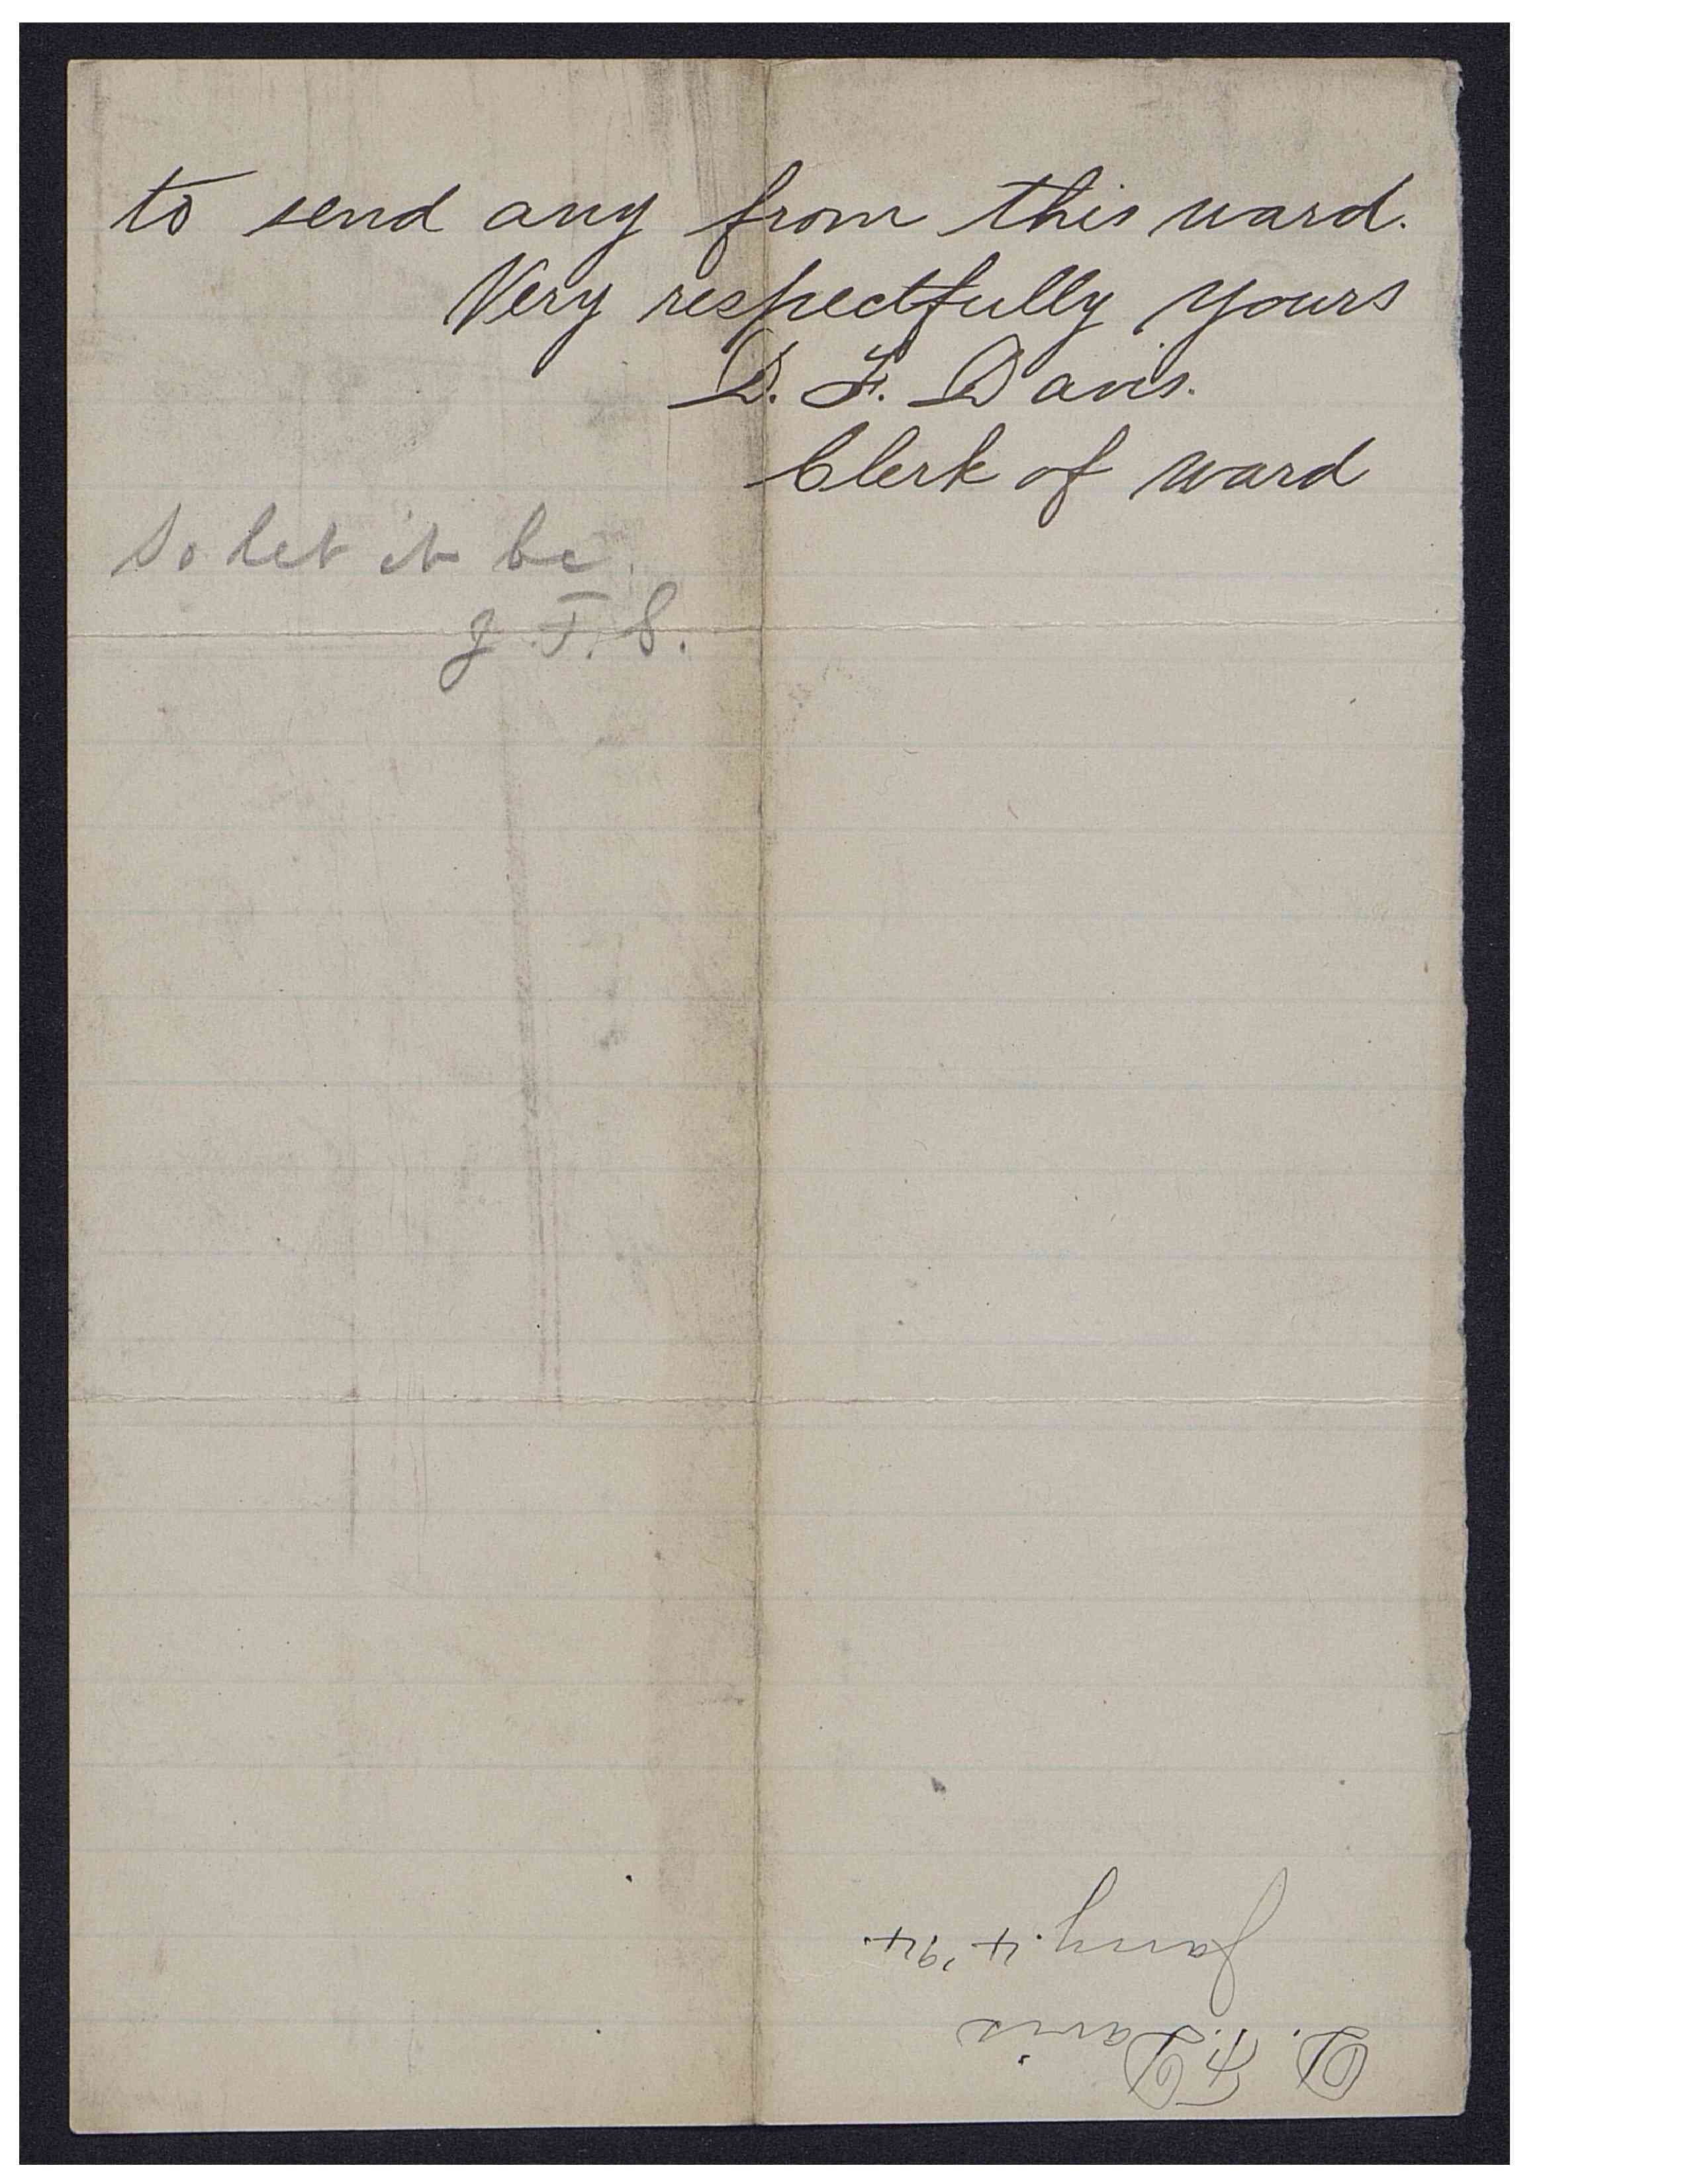 to send any from this ward.
Very respectfully yours
D. F. Davis.
Clerk of ward
So let it be.
J. F. S.
D. F. Davis
Jany. 4 '94.